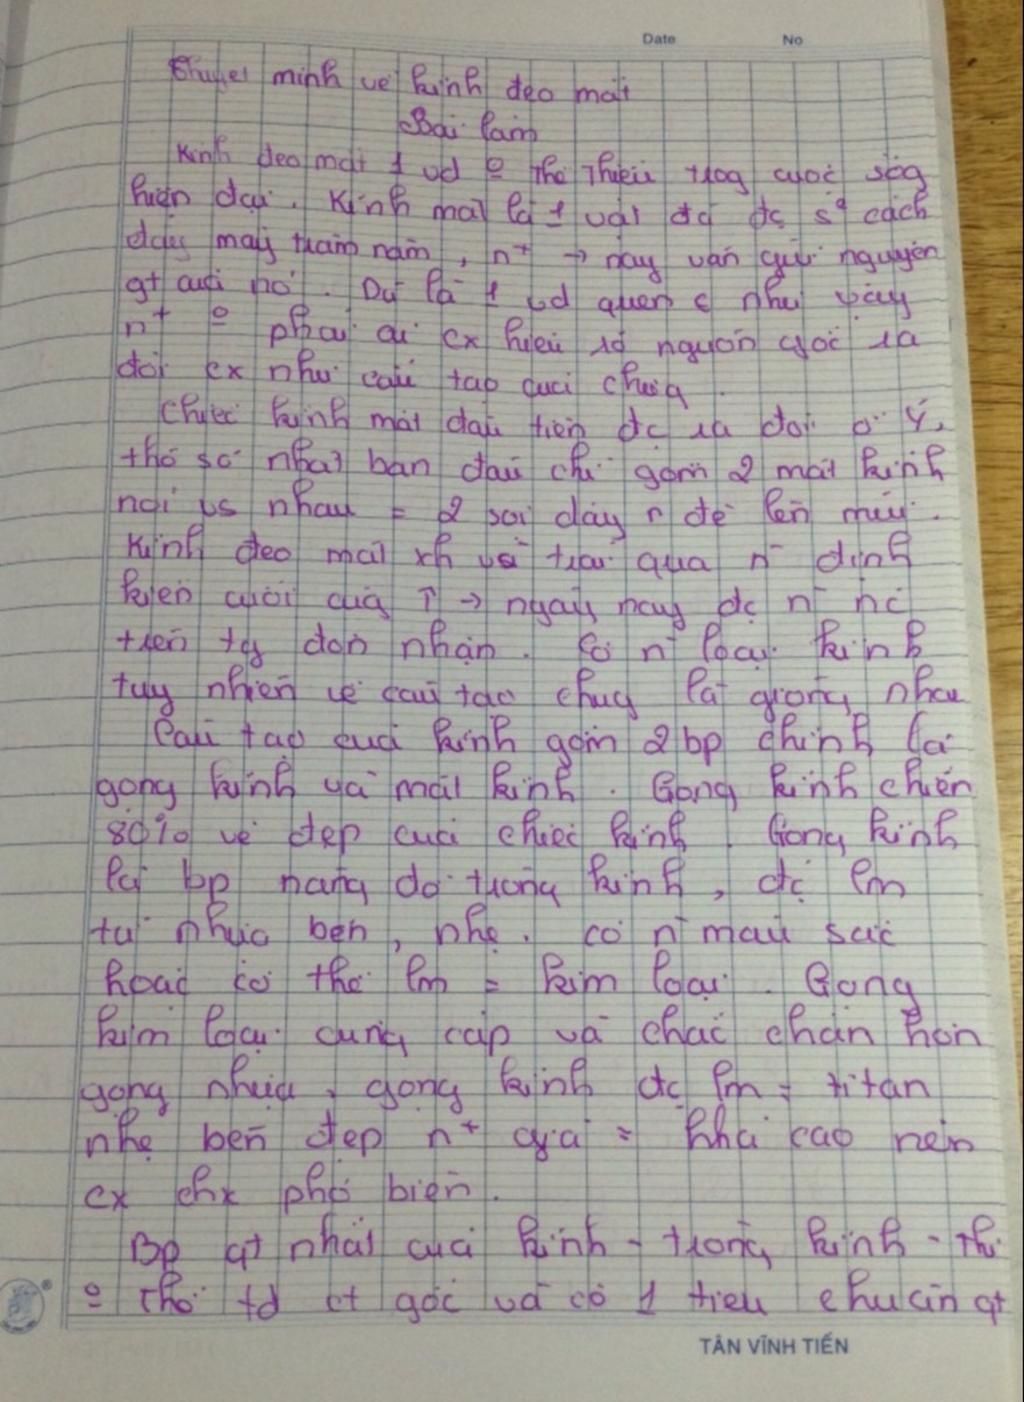 Date No
Thuyết minh về kính đeo mắt
Bài làm
Kính đeo mắt 1 vd o thể thiếu trog cuộc sốg
hiện đại. Kính mát là 1 vật đã đc s² cách
đây mấy trăm năm, n+ → nay vẫn giữ nguyên
gt của nó. Dù là 1 vd quen c như vậy
n+ o phải ai cx hiểu rõ nguồn gốc ra
đời cx như cấu tạo của chúg.
Chiếc kính mắt đầu tiên đc ra đời ở Ý,
thô sơ nhất ban đầu chỉ gồm 2 mắt kính
nối vs nhau = 2 sợi dây n đè lên mũi.
Kính đeo mắt xh và trải qua n~ định
kiến cười của ↑ → ngày nay đc n~ nc
trên tg đón nhận. Có n~ loại kính
tuy nhiên về cấu tạo chúg lại giống nhau
Cấu tạo của kính gồm 2 bp chính là
gọng kính và mắt kính. Gọng kính chiếm
80% vẻ đẹp của chiếc kính. Gọng kính
là bp nâng đỡ tròng kính, đc lm
từ nhựa bền, nhẹ. có n~ màu sắc
hoặc có thể lm = kim loại. Gọng
kim loại cứng cáp và chắc chắn hơn
gọng nhựa, gọng kính đc lm = titan
nhẹ bền đẹp n+ giá = khá cao nên
cx chx phổ biến.
Bp qt nhất của kính - tròng kính - thì
o thể td ct gốc và có 1 tiêu chuẩn qt
TÂN VĨNH TIẾN